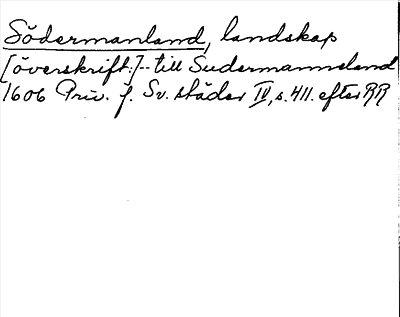 Södermanland, landskap
[överskrift:]-- till Sudermanneland
1606 Priv. f. Sv. städer IV, s. 411. efter RR